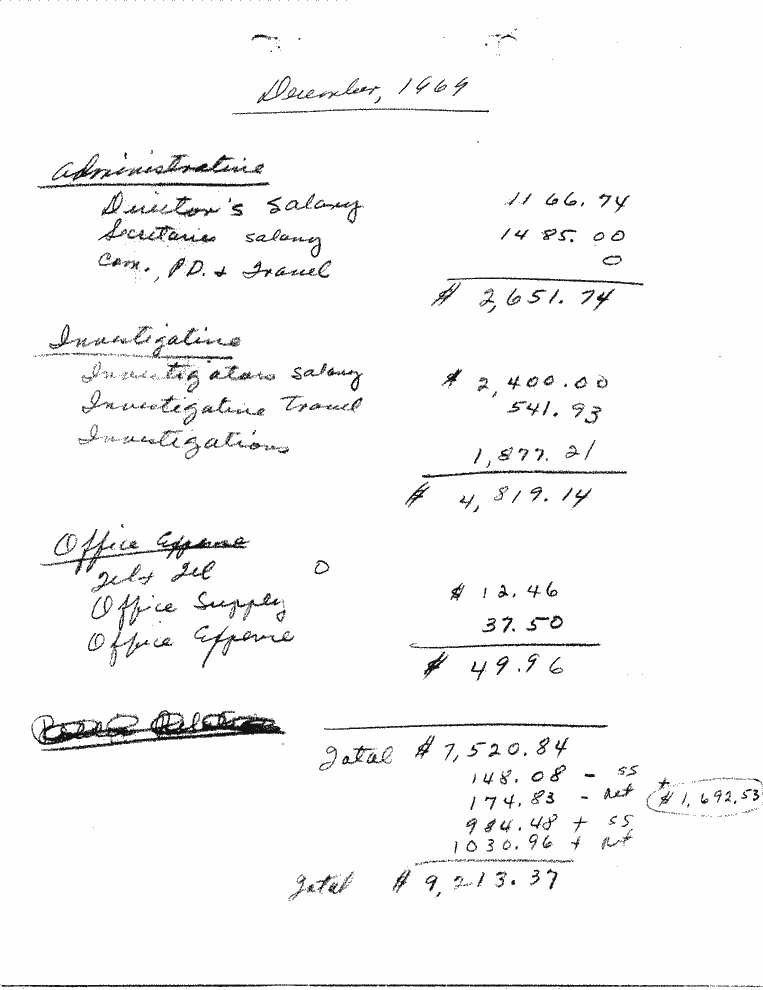 December, 1969
Administrative
Director's Salary 1166.74
Secretaries salary 1485.00
Com., PD. + Travel 0
$ 2,651.74
Investigative
Investigators salary $ 2,400.00
Investigative Travel 541.93
Investigations 1,877.21
$ 4,819.14
Office Expense
Tel + Tel 0
Office Supply $ 12.46
Office Expense 37.50
$ 49.96
Total $ 7,520.84
148.08 - SS
174.83 - Ret + $1,692.53
984.48 + SS
1030.96 + Ret
Total $ 9,213.37